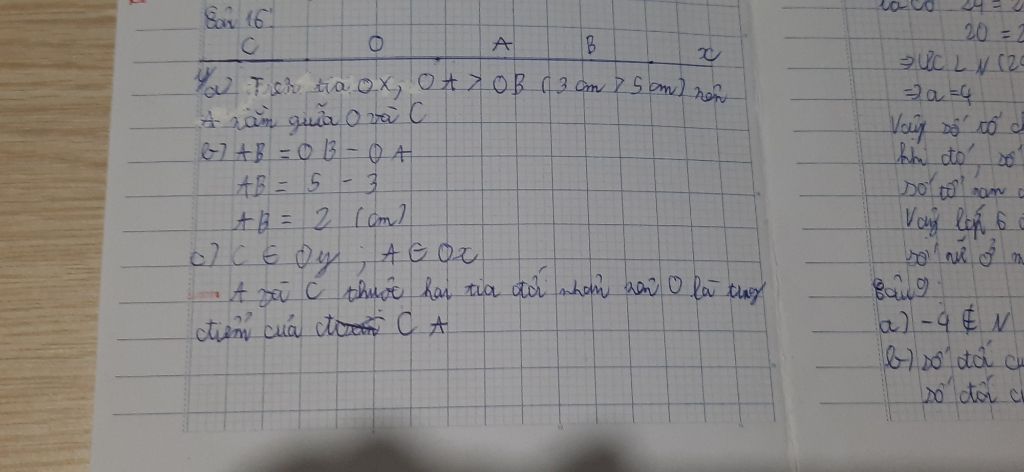 Bài 16
C O A B x
a) Trên tia Ox, OA > OB (3 cm > 5 cm) nên
A nằm giữa O và C
b) AB = OB - OA
AB = 5 - 3
AB = 2 (cm)
c) C ∈ Oy ; A ∈ Ox
A và C thuộc hai tia đối nhau nên O là trung
điểm của C A
20 = 2
⇒ a = 4
Vậy số tổ
khi đó, số
số tổ nam
Vậy lớp 6
số nữ ở
Bài 9
a) -4 ∉ N
b) số đối
số đối